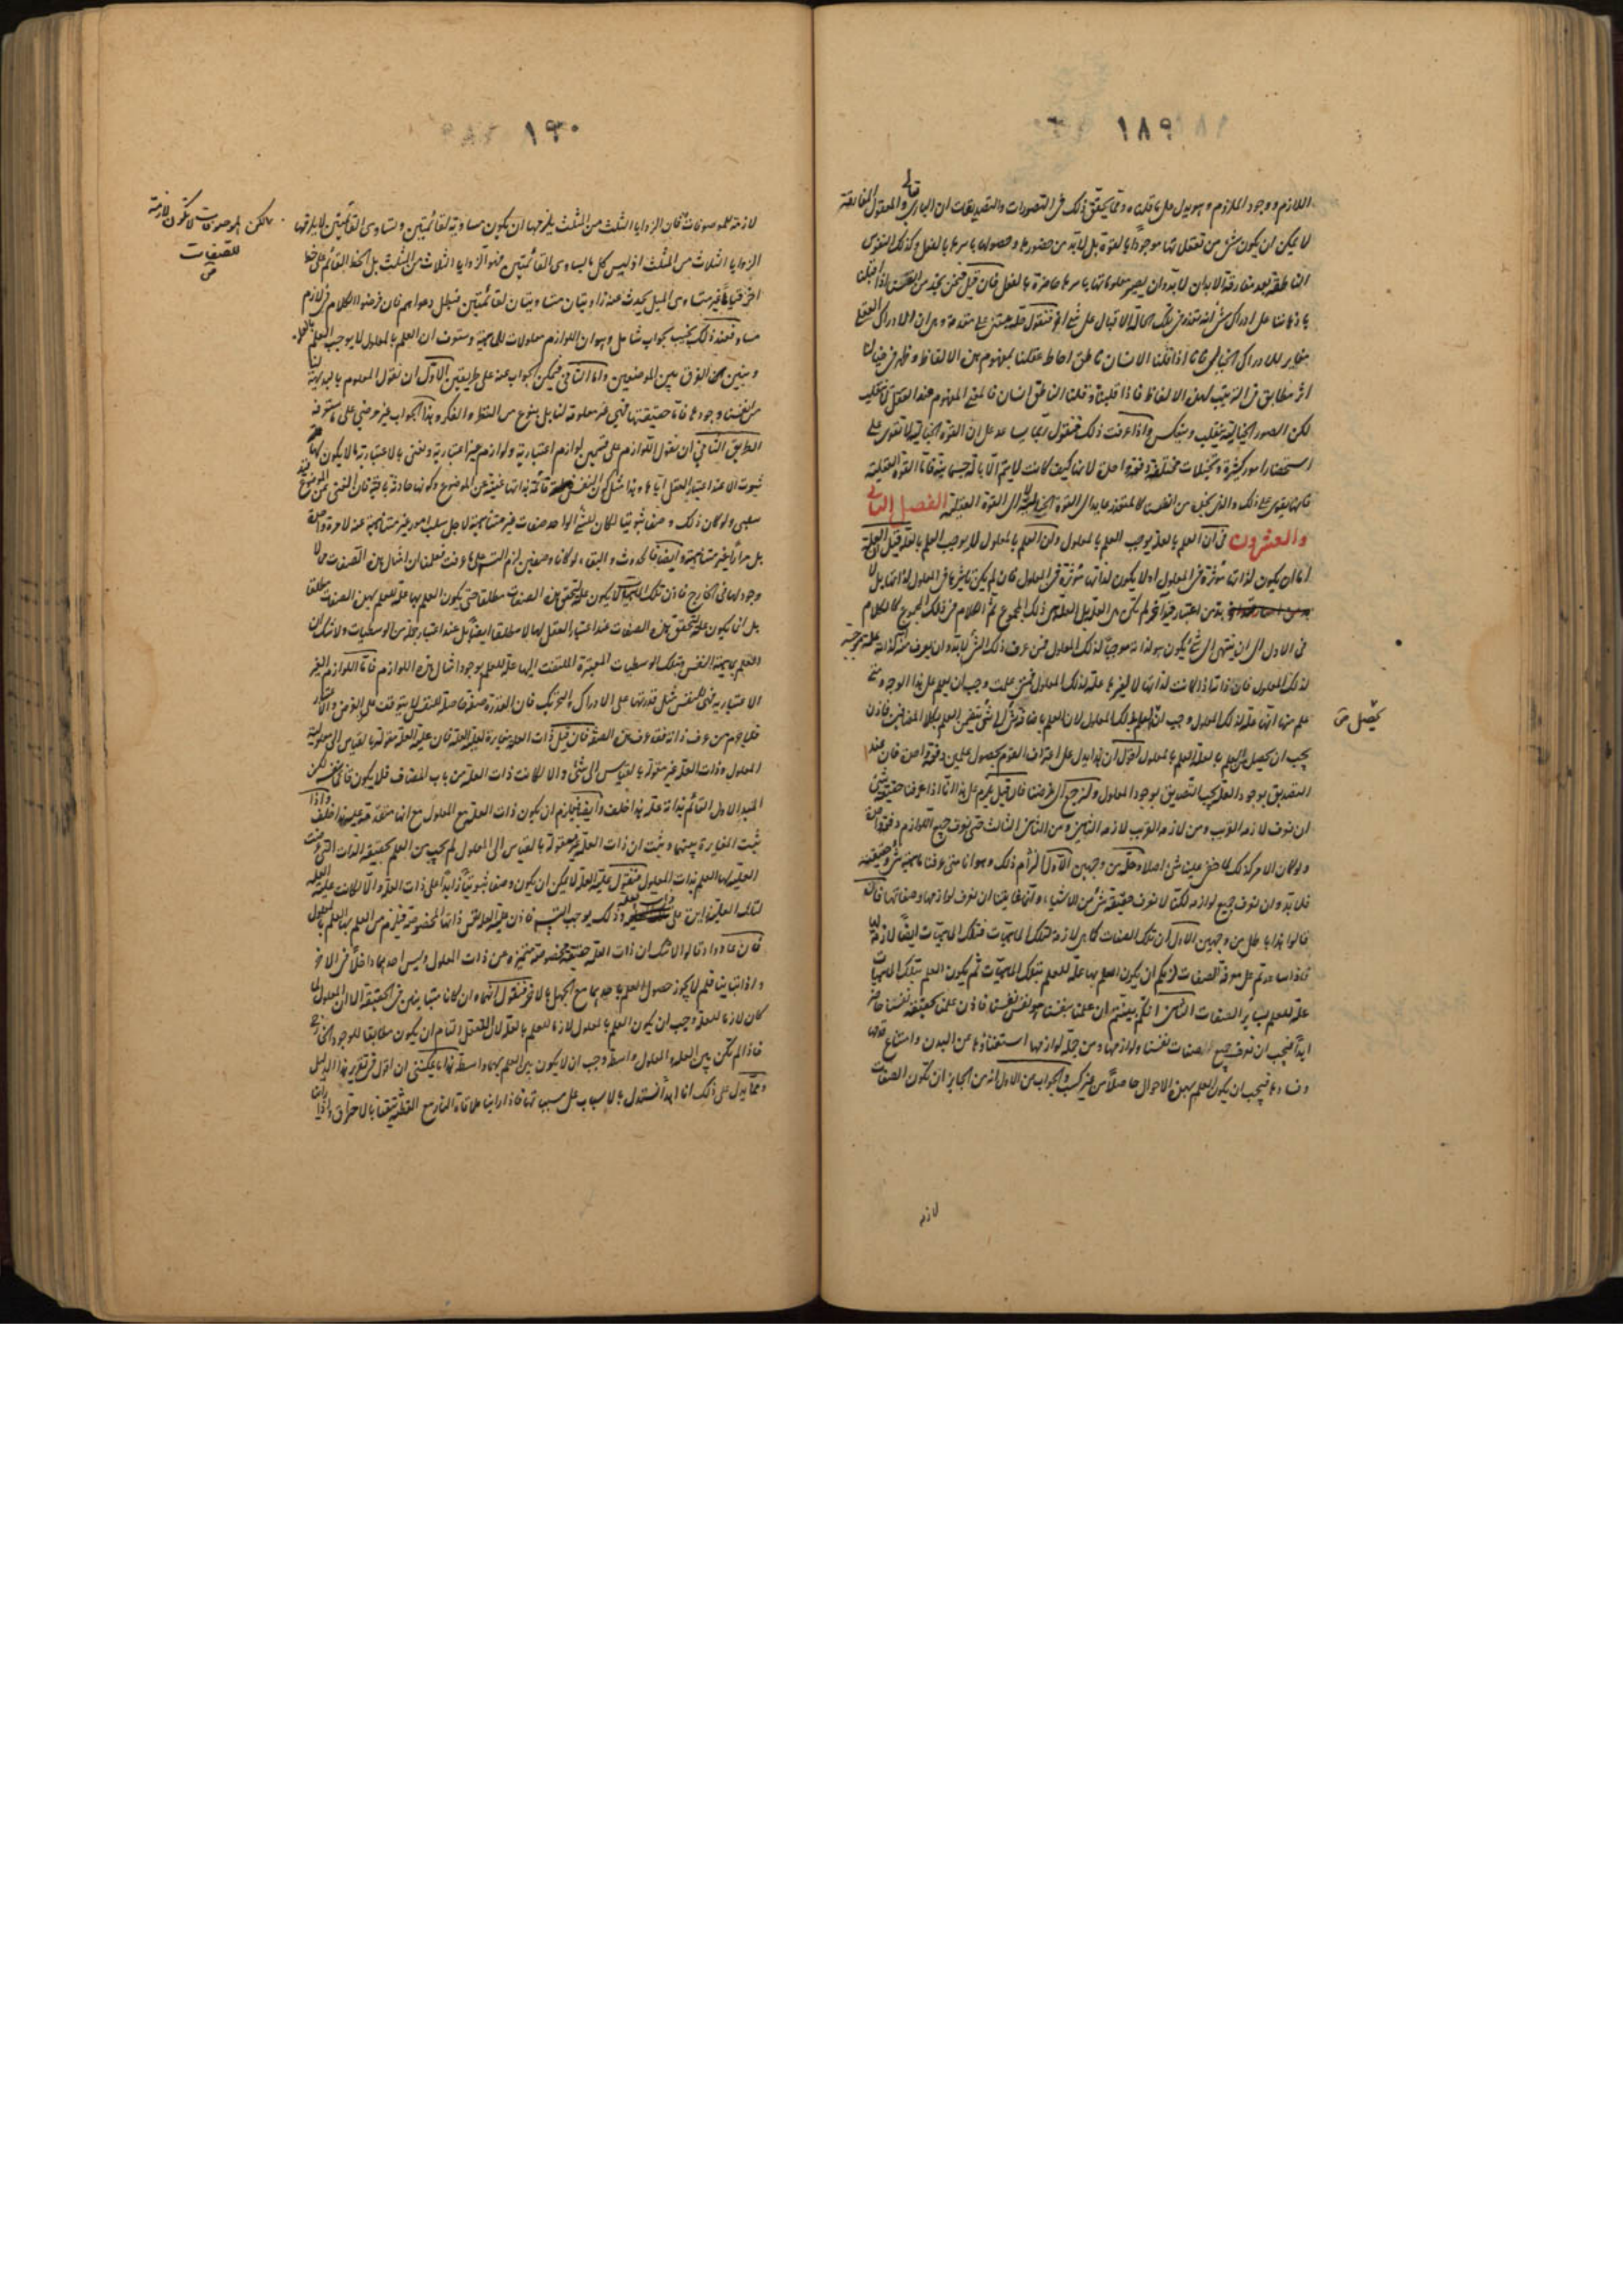 ١٨٩
اللازم ووجود الملازم وهو يدل على ما قلناه ومما يحقق ذلك فى التصورات والتصديقات ان البارى تعالى والعقول الفائضة
لا يمكن ان يكون شئ من تعقلاتها موجودا بالقوة بل لابد من حضورها وحصولها باسرها بالفعل وكذلك النفوس
الناطقة بعد مفارقة الابدان لابد وان يصير معلوماتها باسرها حاضرة بالفعل فان قيل فنحن نجد من انفسنا اذا اقبلنا
باذهاننا على ادراك شئ انه يتعذر فى تلك الحالة الاقبال على شئ آخر فنقول حله مبتنى على مقدمة وهى ان الادراك العقلى
مغاير للادراك الخيالى فانا اذا قلنا الانسان ناطق احاط عقلنا بمفهوم هذه الالفاظ وظهر فى خيالنا
اثر مطابق فى الترتيب لهذه الالفاظ فاذا قلبناه وقلنا الناطق انسان فالمعنى المفهوم عند العقل لا ينقلب
لكن الصور الخيالية ينقلب وينعكس واذا عرفت ذلك فنقول ربما يساعد على ان القوة الخيالية لا تقوى على
استحضار امور كثيرة وتخيلات مختلفة دفعة واحدة لانها كيف كانت لا يتم الا بآلة جسمانية فاما القوة العقلية
فانها يقوى على ذلك والذى نجد من انفسنا كالمتعذر عايد الى القوة الخيالية لا الى القوة العقلية الفصل الثانى
والعشرون فى ان العلم بالعلة يوجب العلم بالمعلول وان العلم بالمعلول لا يوجب العلم بالعلة قيل العلة
اما ان يكون لذاتها مؤثرة فى المعلول او لا يكون لذاتها مؤثرة فى المعلول فان لم يكن تاثيرها فى المعلول لذاتها بل لا
بد من اعتبار قيد آخر لم تكن هى العلة بل العلة هى ذلك المجموع ثم الكلام فى ذلك المجموع كالكلام
فى الاول الى ان ينتهى الى شئ يكون هو لذاته موجبا لذلك المعلول فمن عرف ذلك الشئ لابد وان يعرف منه كذاته علة موجبة
لذلك المعلول فان ذاتها اذ كانت لذاتها لا لغيرها علة لذلك المعلول فمتى علمت وجب ان يعلم على هذا الوجه ومتى
علم منها انها علة لذلك المعلول وجب ان يعلم ذلك المعلول لان العلم باضافة شئ الى شئ يتضمن العلم بكلا المضافين فاذن
يجب ان يحصل من العلم بالعلة العلم بالمعلول اقول ان هذا يدل على اعتراف القوم بحصول علمين دفعة واحدة فان عند
يحصل من
التصديق بوجود العلة يجب التصديق بوجود المعلول ولنرجع الى غرضنا فان قيل يلزم على هذا انا اذا عرفنا حقيقة شئ
ان نعرف لازمه القريب ومن لازمه القريب لازمه الثانى ومن الثانى الثالث حتى نعرف جميع اللوازم دفعة واحدة
ولو كان الامر كذلك لما خفى علينا شئ اصلا وحله من وجهين الاول التزام ذلك وهو انا متى عرفنا ماهية شئ وحقيقته
فلابد وان نعرف جميع لوازمه لكنا لا نعرف حقيقة شئ من الاشياء وانما غايتنا ان نعرف لوازمها وصفاتها فان
قالوا هذا باطل من وجهين الاول ان تلك الصفات كما هى لازمة لتلك الماهيات فتلك الماهيات ايضا لازمة لها
فاذا ساعدتم على معرفة الصفات لزمكم ان يكون العلم بها علة للعلم بتلك الماهيات ثم يكون العلم بتلك الماهيات
علة للعلم بساير الصفات الثانى انكم بينتم ان علمنا بنفسنا هو نفس نفسنا فاذن علمنا بحقيقة نفسنا حاضر
ابدا فيجب ان نعرف جميع صفات نفسنا ولوازمها ومن جملة لوازمها استغناؤها عن البدن وامتناع عدمها
وفسادها فيجب ان يكون العلم بهذه الاحوال حاصلا من غير كسب والجواب عن الاول انه من الجايز ان تكون الصفات
لازم
١٩٠
لازمة للموصوفات فان الزوايا الثلث من المثلث يلزمها ان يكون مساوية لقائمتين وتساوى القائمتين لا يلزمها
لكن الموصوفات لا تكون لازمة
للصفات
الزوايا الثلاث من المثلث اذ ليس كل ما ساوى القائمتين فهو الزوايا الثلاث من المثلث بل الخط القائم على خط
آخر قياما غير متساوى الميل يحدث عنه زاويتان متساويتان لقائمتين فبطل دعواهم فان فرضوا الكلام فى لازم
مساو فعند ذلك نجيب بجواب شامل وهو ان اللوازم معلولات للماهية وستعرف ان العلم بالمعلول لا يوجب العلم بالعلة
ونبين الفرق بين الموضعين واما الثانى فيمكن الجواب عنه على طريقين الاول ان نقول المعلوم بالبديهة لنا
من انفسنا وجودها فاما حقيقتها فهى غير معلومة لنا بل بنوع من النظر والفكر وهذا الجواب غير مرضى على ما ستعرفه
الطريق الثانى ان نقول اللوازم على قسمين لوازم اعتبارية ولوازم غير اعتبارية ونعنى بالاعتبارية ما لا يكون لها
ثبوت الا عند اعتبار العقل اياها وهذا مثل كون النفس قائمة بذاتها غنية عن الموضوع وكونها حادثة باقية فان الغنى عن الموضوع قيد
سلبى ولو كان ذلك وصفا ثبوتيا لكان للشئ الواحد صفات غير متناهية لاجل سلب امور غير متناهية عنه لا مرة واحدة
بل مرارا غير متناهية وايضا فالحدوث والبقاء لو كانا وصفين لزم التسلسل على ما عرفت فعلمنا ان امثال هذه الصفات لا
وجود لها فى الخارج فاذن تلك الماهيات لا يكون علة لتحقق هذه الصفات مطلقا حتى يكون العلم بها علة للعلم بهذه الصفات مطلقا
بل انما يكون علة لتحقق هذه الصفات عند اعتبار العقل لها لا مطلقا ايضا بل عند اعتبار جملة من الوسطيات ولا شك ان
العلم بماهية النفس وبتلك الوسطيات المعتبرة الملتفت اليها علة للعلم بوجود امثال هذه اللوازم فاما اللوازم الغير
الاعتبارية فهى للنفس مثل قدرتها على الادراك والتحريك فان القدرة صفة حاصلة للنفس لا يتوقف على الفرض والاعتبار
فلا جرم من عرف ذاته فقد عرف هذه الصفة فان قيل ذات العلة مغايرة لعلية العلة فان علية العلة مقولة بالقياس الى معلولية
المعلول وذات العلة غير مقولة بالقياس الى شئ والا لكانت ذات العلة من باب المضاف فلا يكون قائما بنفسه لكن
المبدا الاول القائم بذاته علة هذا خلف وايضا فيلزم ان يكون ذات العلة مع المعلول مع انها متقدمة عليه هذا خلف واذا
ثبت المغايرة بينهما وثبت ان ذات العلة غير مقولة بالقياس الى المعلول لم يجب من العلم بحقيقة الذات التى عرضت
العلية لها العلم بذات المعلول فنقول علية العلة لا يمكن ان يكون وصفا ثبوتيا زايدا على ذات العلة والا لكانت علية العلة
لتلك العلية زايدة على ذات العلة وذلك يوجب التسلسل فاذن علية العلة نفس ذاتها المخصوصة فيلزم من العلم بها العلم بالمعلول
فان عادوا وقالوا لا شك ان ذات العلة حقيقة مخصوصة متميزة عن ذات المعلول وليس احدهما داخلا فى الاخر
واذا تباينا فلم لا يجوز حصول العلم باحدهما مع الجهل بالاخر فنقول انهما وان كانا متباينين فى الحقيقة الا ان المعلول لما
كان لازما للعلة وجب ان يكون العلم بالمعلول لازما للعلم بالعلة لان التعقل التام ان يكون مطابقا للوجود الخارجى
فاذا لم تكن بين العلة والمعلول واسطة وجب ان لا يكون بين العلم بهما واسطة هذا ما يمكننى ان اقول فى تقرير هذا الدليل
ومما يدل على ذلك انا ابدا نستدل بالاسباب على مسبباتها فاذا راينا ملاقاة النار مع القطنة تيقنا بالاحتراق واذا راينا